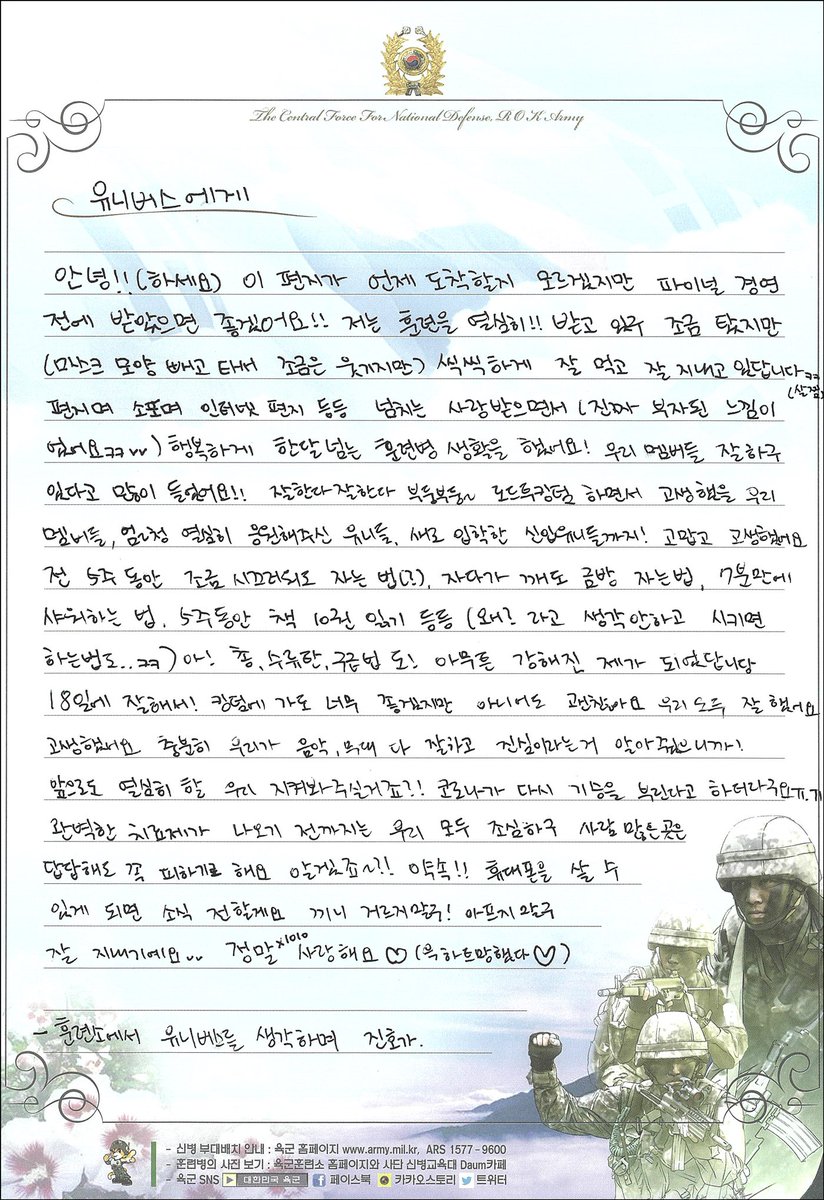 The Central Force For National Defense, R O K Army
유니버스에게
안녕!! (하세요) 이 편지가 언제 도착할지 모르겠지만 파이널 경연
전에 받았으면 좋겠어요!! 저는 훈련을 열심히!! 받고 있구 조금 탔지만
(마스크 모양 빼고 타서 조금은 웃기지만) 씩씩하게 잘 먹고 잘 지내고 있답니다ㅋㅋ
편지며 소포며 인터넷 편지 등등 넘치는 사랑받으면서 (진짜 부자된 느낌이
었어요ㅋㅋ) 행복하게 한달 넘는 훈련병 생활을 했어요! 우리 멤버들 잘하구
있다고 많이 들었어요!! 잘한다잘한다 부둥부둥~ 로드투킹덤 하면서 고생했을 우리
멤버들, 엄~청 열심히 응원해주신 유니들, 새로 입학한 신입유니들까지! 고맙고 고생했어요
전 5주 동안 조금 시끄러워도 자는 법(?), 자다가 깨도 금방 자는 법, 7분만에
샤워하는 법, 5주동안 책 10권 읽기 등등 (왜? 라고 생각안하고 시키면
하는법도..ㅋㅋ) 아! 총, 수류탄, 구급법 도! 아무튼 강해진 제가 되었답니당
18일에 잘해서! 킹덤에 가도 너무 좋겠지만 아니어도 괜찮아요 우리 모두 잘 했어요
고생했어요 충분히 우리가 음악, 무대 다 잘하고 진심이라는거 알아줬으니까!
앞으로도 열심히 할 우리 지켜봐주실거죠?! 코로나가 다시 기승을 부린다고 하더라구요ㅠ.ㅠ
완벽한 치료제가 나오기 전까지는 우리 모두 조심하구 사람 많은곳은
답답해도 꼭 피하기로 해요 알겠죠~?! 약속!! 휴대폰을 살 수
있게 되면 소식 전할게요 끼니 거르지않구! 아프지않구
잘 지내기에요 정말x1010 사랑해요♡ (윽 하트망했다♡)
- 훈련소에서 유니버스를 생각하며 진호가.
- 신병 부대배치 안내 : 육군 홈페이지 www.army.mil.kr, ARS 1577-9600
- 훈련병의 사진 보기 : 육군훈련소 홈페이지와 사단 신병교육대 Daum카페
- 육군 SNS 대한민국 육군 페이스북 카카오스토리 트위터